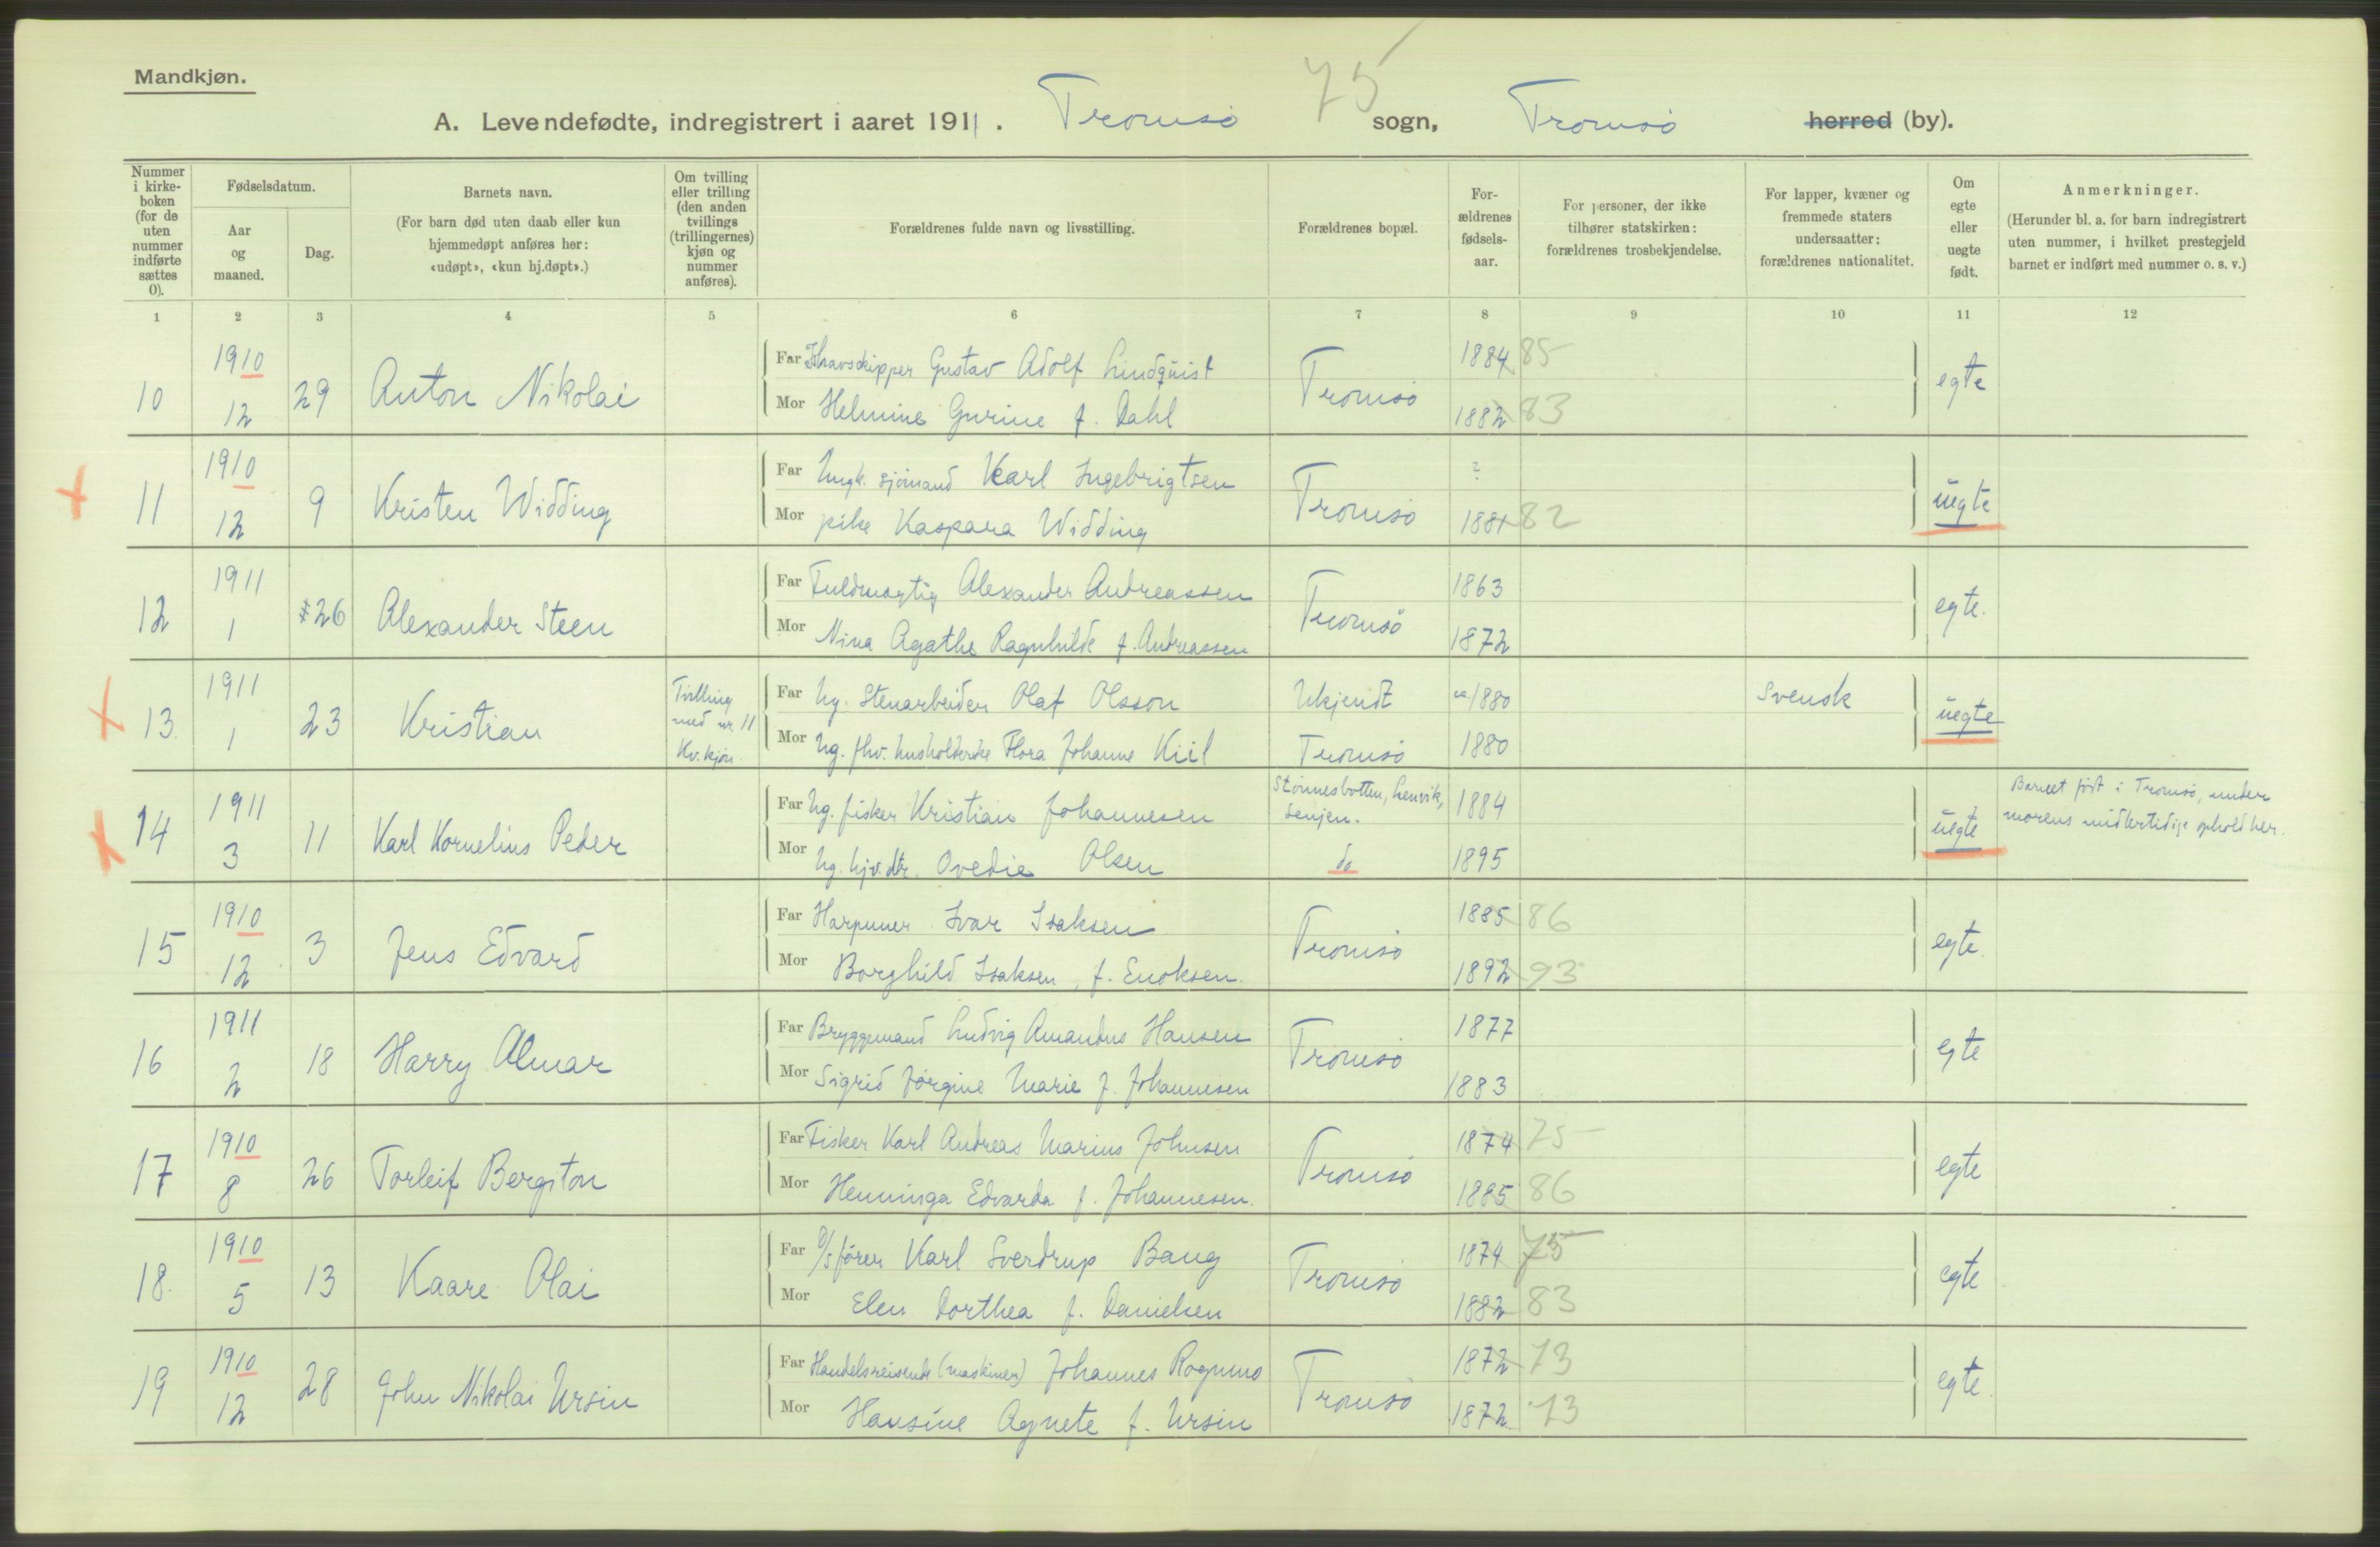 Mandkjøn.
75
A. Levendefødte, indregistrert i aaret 1911. Tromsø sogn, Tromsø herred (by).
Nummer i kirke-boken (for de uten nummer indførte sættes 0).
Fødselsdatum.
Aar og maaned.
Dag.
Barnets navn.
(For barn død uten daab eller kun hjemmedøpt anføres her: «udøpt», «kun hj.døpt».)
Om tvilling eller trilling (den anden tvillings (trillingernes) kjøn og nummer anføres).
Forældrenes fulde navn og livsstilling.
Forældrenes bopæl.
For-ældrenes fødsels-aar.
For personer, der ikke tilhører statskirken: forældrenes trosbekjendelse.
For lapper, kvæner og fremmede staters undersaatter: forældrenes nationalitet.
Om egte eller uegte født.
Anmerkninger.
(Herunder bl. a. for barn indregistrert uten nummer, i hvilket prestegjeld barnet er indført med nummer o. s. v.)
1 2 3 4 5 6 7 8 9 10 11 12
10 1910 12 29 Anton Nikolai
Far Ishavsskipper Gustav Adolf Lindquist Tromsø 1884 85 egte
Mor Helmine Gurine f. Dahl 1882 83
11 1910 12 9 Kristen Widding
Far Ungk. sjømand Karl Ingebrigtsen Tromsø ? uegte
Mor pike Kaspara Widding 1881 82
12 1911 1 26 Alexander Steen
Far Fuldmægtig Alexander Andreassen Tromsø 1863 egte.
Mor Nina Agathe Ragnhilde f. Andreassen 1872
13. 1911 1 23 Kristian
Tvilling med nr. 11 Kv. kjøn.
Far Ug. Stenarbeider Olaf Olsson Ukjendt ca 1880 Svensk uegte
Mor Ug. fhv. husholderske Flora Johanne Kiil Tromsø 1880
14 1911 3 11 Karl Kornelius Peder
Far Ug. fisker Kristian Johannesen Stønnesbotten, Lenvik, Senjen. 1884 uegte
Mor Ug. hjv. dtr. Ovedie Olsen do 1895
Barnet født i Tromsø, under
morens midlertidige ophold her.
15 1910 12 3 Jens Edvard
Far Harpuner Ivar Isaksen Tromsø 1885 86 egte.
Mor Borghild Isaksen, f. Enoksen. 1892 93
16 1911 2 18 Harry Almar
Far Bryggemand Ludvig Amandus Hansen Tromsø 1877 egte
Mor Sigrid Jørgine Marie f. Johannesen 1883
17 1910 8 26 Torleif Bergiton
Far Fisker Karl Andreas Marius Johnsen Tromsø 1874 75 egte
Mor Henninga Edvarda f. Johannesen. 1885 86
18. 1910 5 13 Kaare Olai
Far D/S fører Karl Sverdrup Bang Tromsø 1874 75 egte
Mor Elen Dorthea f. Danielsen 1882 83
19 1910 12 28 John Nikolai Ursin
Far Handelsreisende (maskiner) Johannes Rognmo Tromsø 1872 73 egte.
Mor Hansine Agnete f. Ursin 1872 73